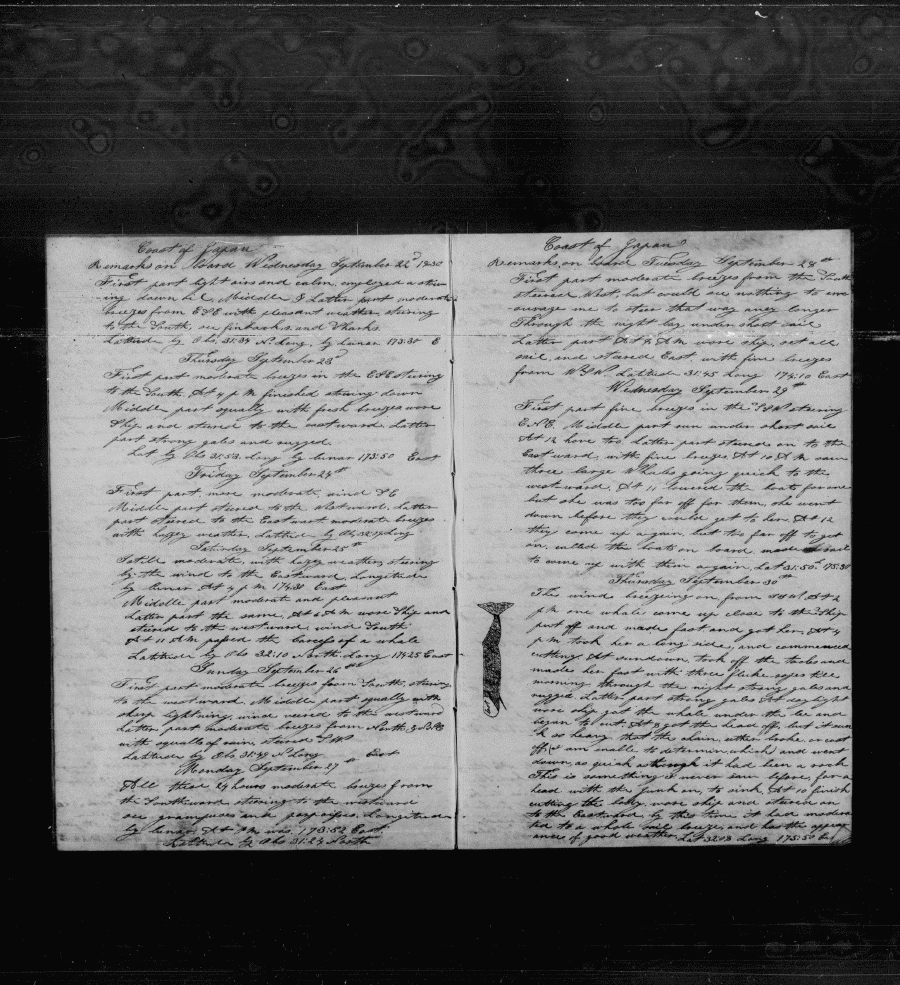 Coast of Japan
Remarks on board Wednesday September 22d 1830
First part light airs and calm, employed a stow
ing down oil, Middle & Latter part moderate
breezes from ESE with pleasant weather, steering
to the South, see finbacks and Sharks.
Latitude by Obs. 31:34 N. Long. by Lunar 173:30 E
Thursday September 23d
First part moderate breezes in the ESE steering
to the South. At 4 P M finished stowing down
Middle part squally with fresh breezes wore
Ship and steered to the eastward. Latter
part strong gales and rugged.
Lat by Obs 31:53. Long by lunar 173:50 East
Friday September 24th
First part, more moderate, wind SE
Middle part steered to the Westward, Latter
part steered to the Eastward moderate breezes
with hazy weather, Latitude by Obs Long
Saturday September 25th
moderate, with hazy weather, steering
by the wind to the Eastward, Longitude
by lunar At 4 P M 174:31 East
Middle part moderate and pleasant
Latter part the same, At 6 A M wore Ship and
steered to the westward, wind South
At 11 A M passed the carcass of a whale
Latitude by Obs 32:10 North. Long 174:25 East
Sunday September 26
First part moderate breezes from South, steering
to the westward, Middle part squally with
sharp lightning, wind veered to the westward
Latter part moderate breezes from North
with squalls of rain, steered SW
Latitude by Obs 31:47 N. Long East
Monday September 27
All these 24 hours moderate breezes from
the Southward steering to the westward
see grampuses and porpoises. Longitude
by lunar At P M was, 173:52 East
Latitude by Obs 31:24 North
Coast of Japan
Remarks, on board Tuesday September 28th
First part moderate breezes from the South
steered West, but could see nothing to enc
ourage me to steer that way any longer
Through the night lay under short sail
Latter part At 8 A M wore ship, set all
sail, and steered East, with fine breezes
from Latitude 31:45 Long 174:10 East
Wednesday September 29th
First part fine breezes in the steering
E.N.E. Middle part run under short sail
At 12 hove too, Latter part steered on to the
Eastward, with fine breezes, At 10 A M saw
three large Whales going quick to the
westward. At 11 lowered the boats for one
but she was too far off for them, she went
down before they could get to her, At 12
they come up again, but too far off to get
on, called the boats on board made sail
to come up with them again, Lat 31:50 175:30
Thursday September 30th
The wind breezing on from SSW, At 2
P M one whale come up close to the Ship
put off and made fast and got her, At 4
P M took her a long side, and commenced
cutting. At sundown, took off the tacles and
made her fast with three fluke ropes till
morning, through the night strong gales and
rugged Latter part strong gales At day light
wore ship got the whale under the lee and
began to cut At 8 got the head off, but it sunk
so heavy, that the chain, either broke, or cast
off (I am unable to determin, which) and went
down, as quick as though it had been a rock
This is something I never saw before, for a
head with the junk on, to sink, At 10 finish
cutting the body, wore ship and steered on
to the Eastward, by this time it had modera
ted to a whole sail breeze, and has the appear
ance of good weather, Lat 32:03 Long 175:50